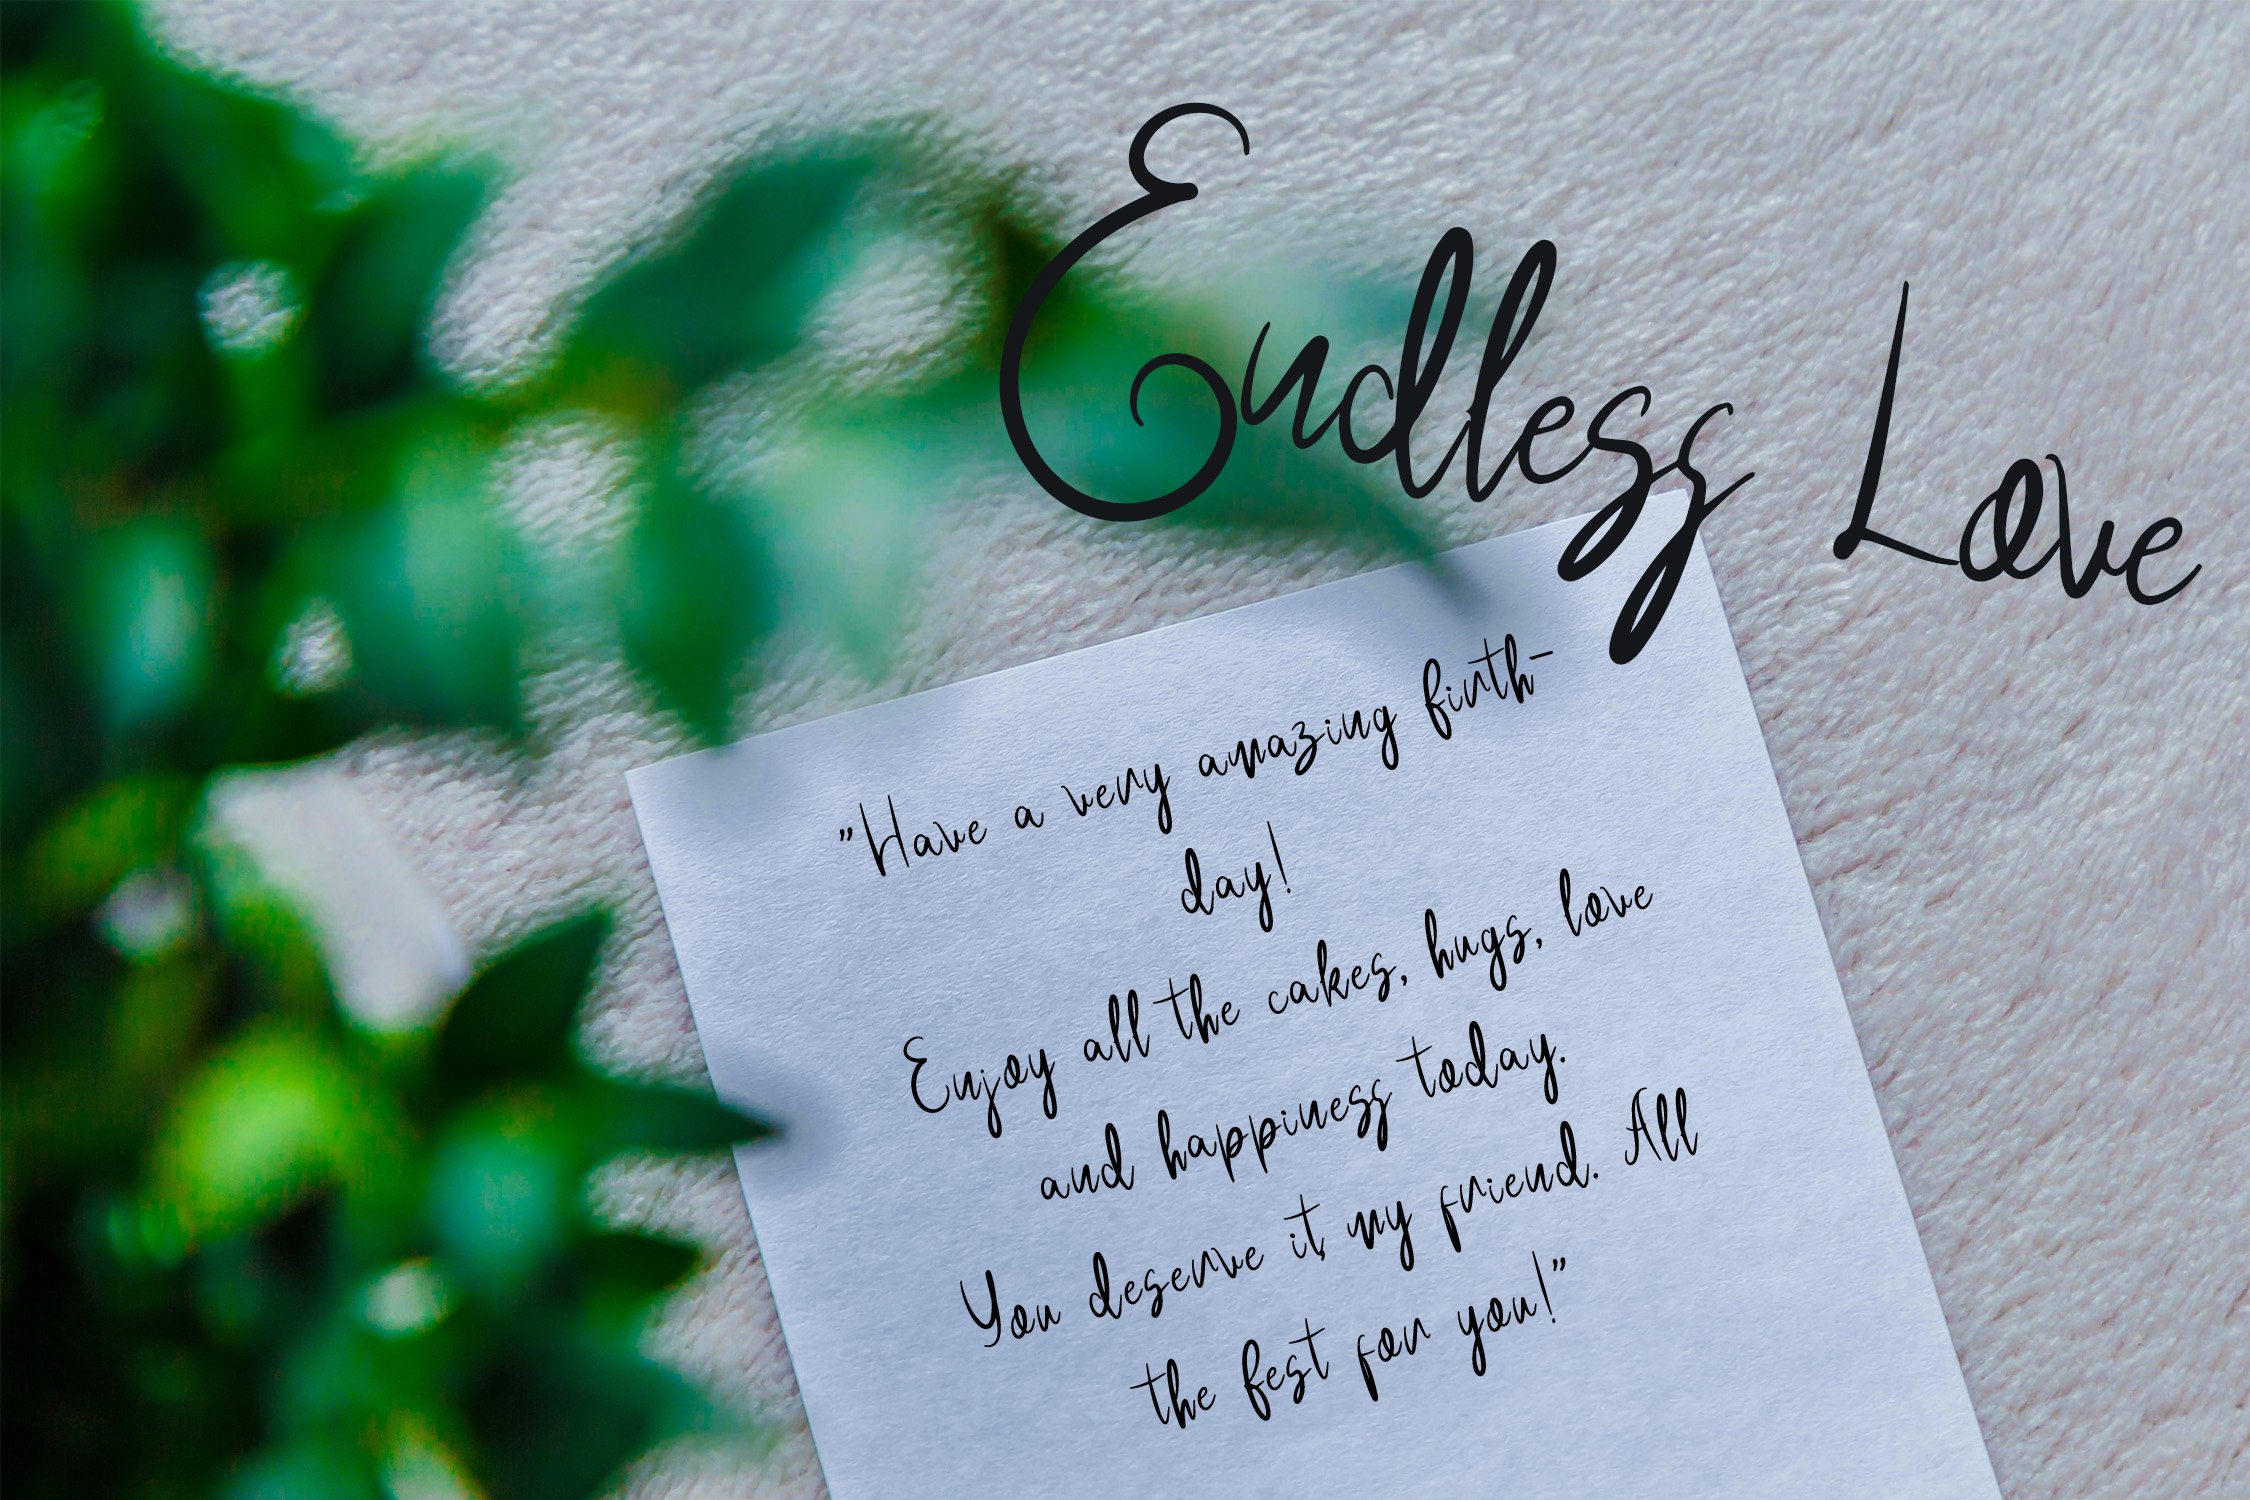 Endless Love
"Have a very amazing birth-
day!
Enjoy all the cakes, hugs, love
and happiness today.
You deserve it, my friend. All
the best for you!"